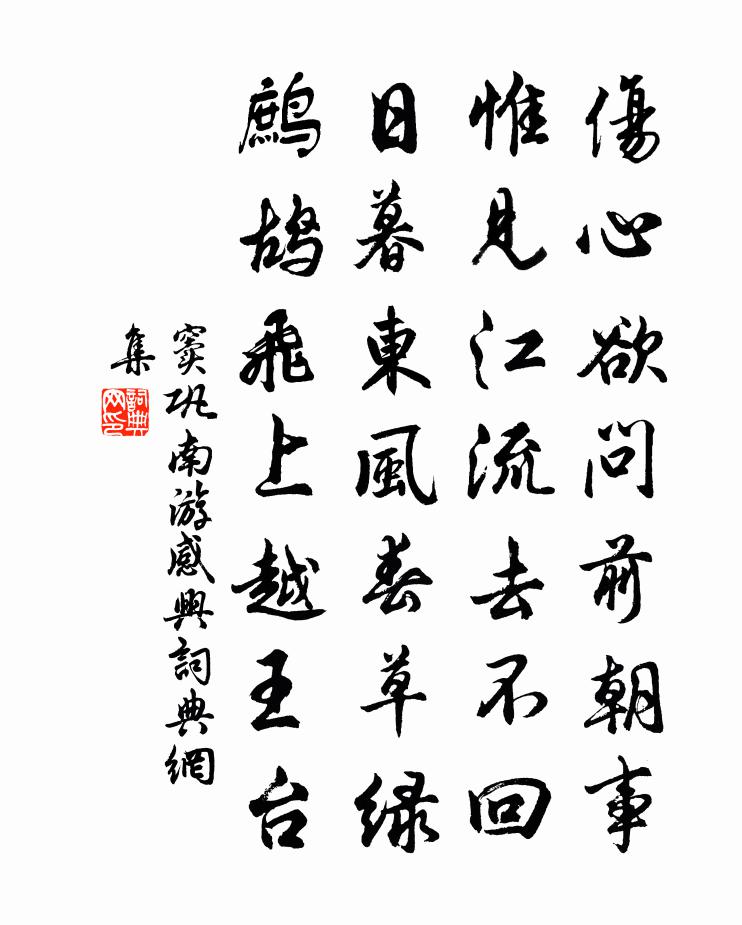 傷心欲問前朝事
惟見江流去不回
日暮東風春草緑
鷓鴣飛上越王台
窦巩南游感興詞典網
集
詞典
网印